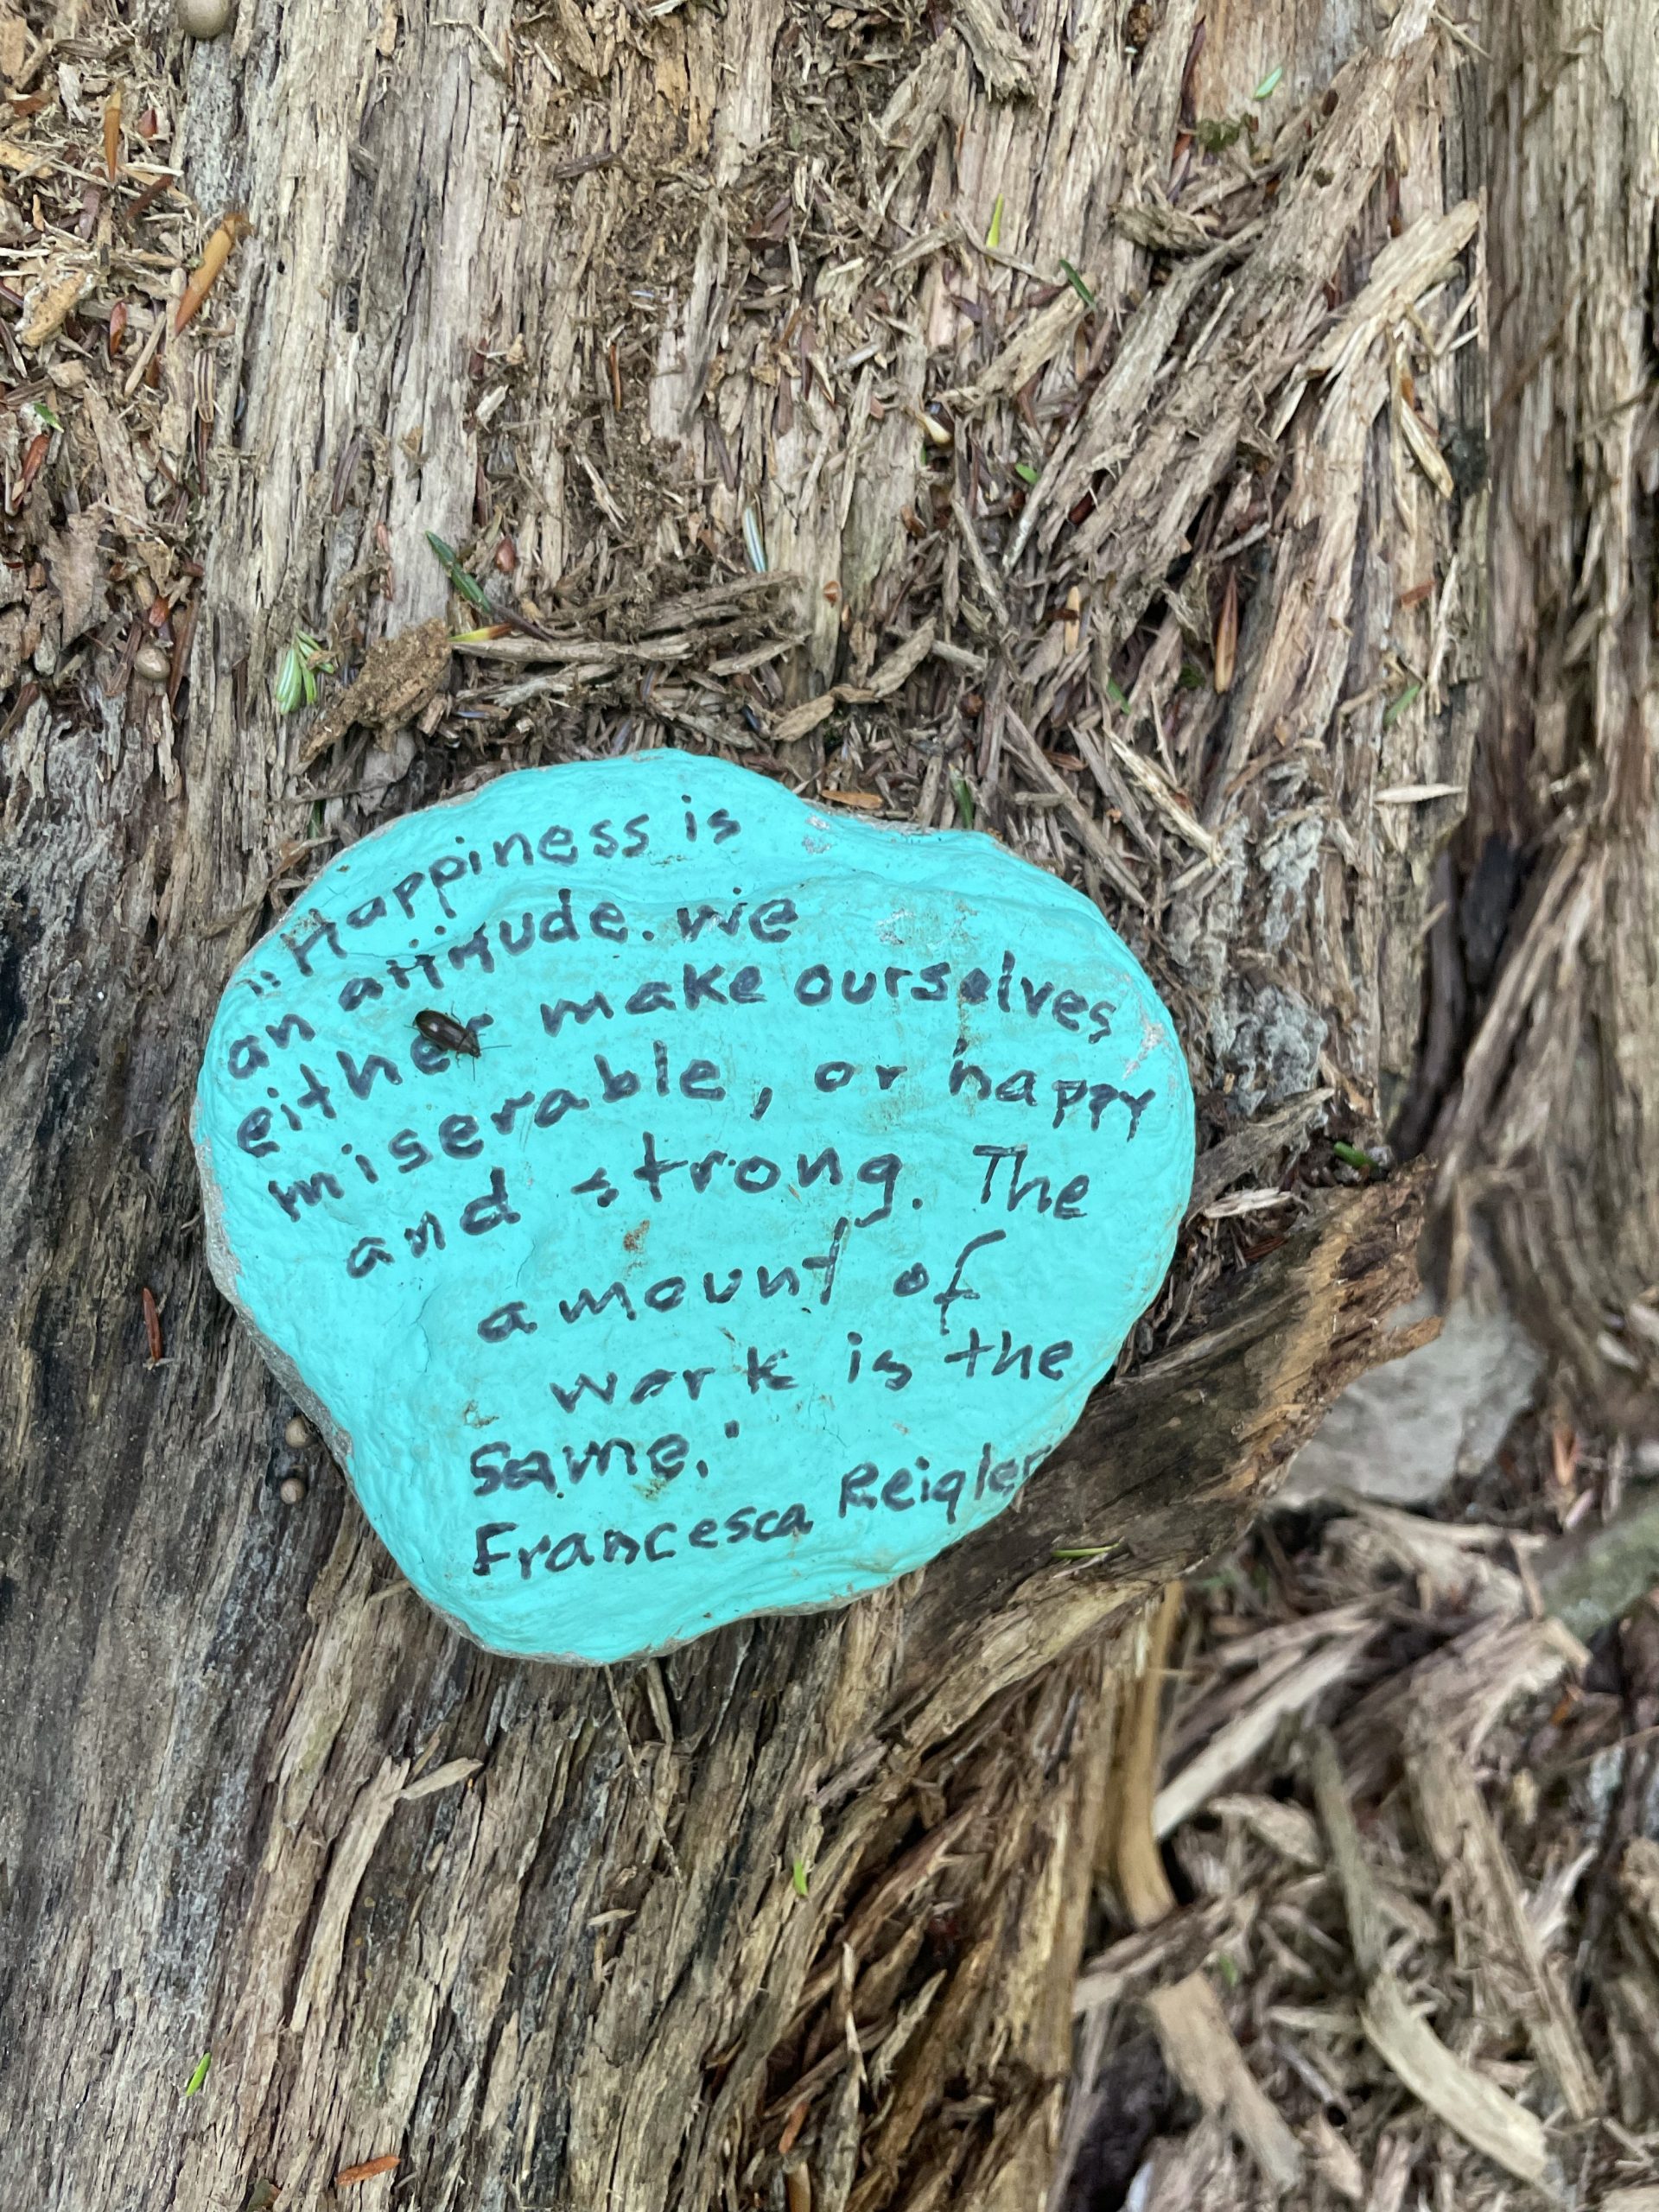 "Happiness is
an attitude. we
either make ourselves
miserable, or happy
and strong. The
amount of
work is the
same."
Francesca Reigler